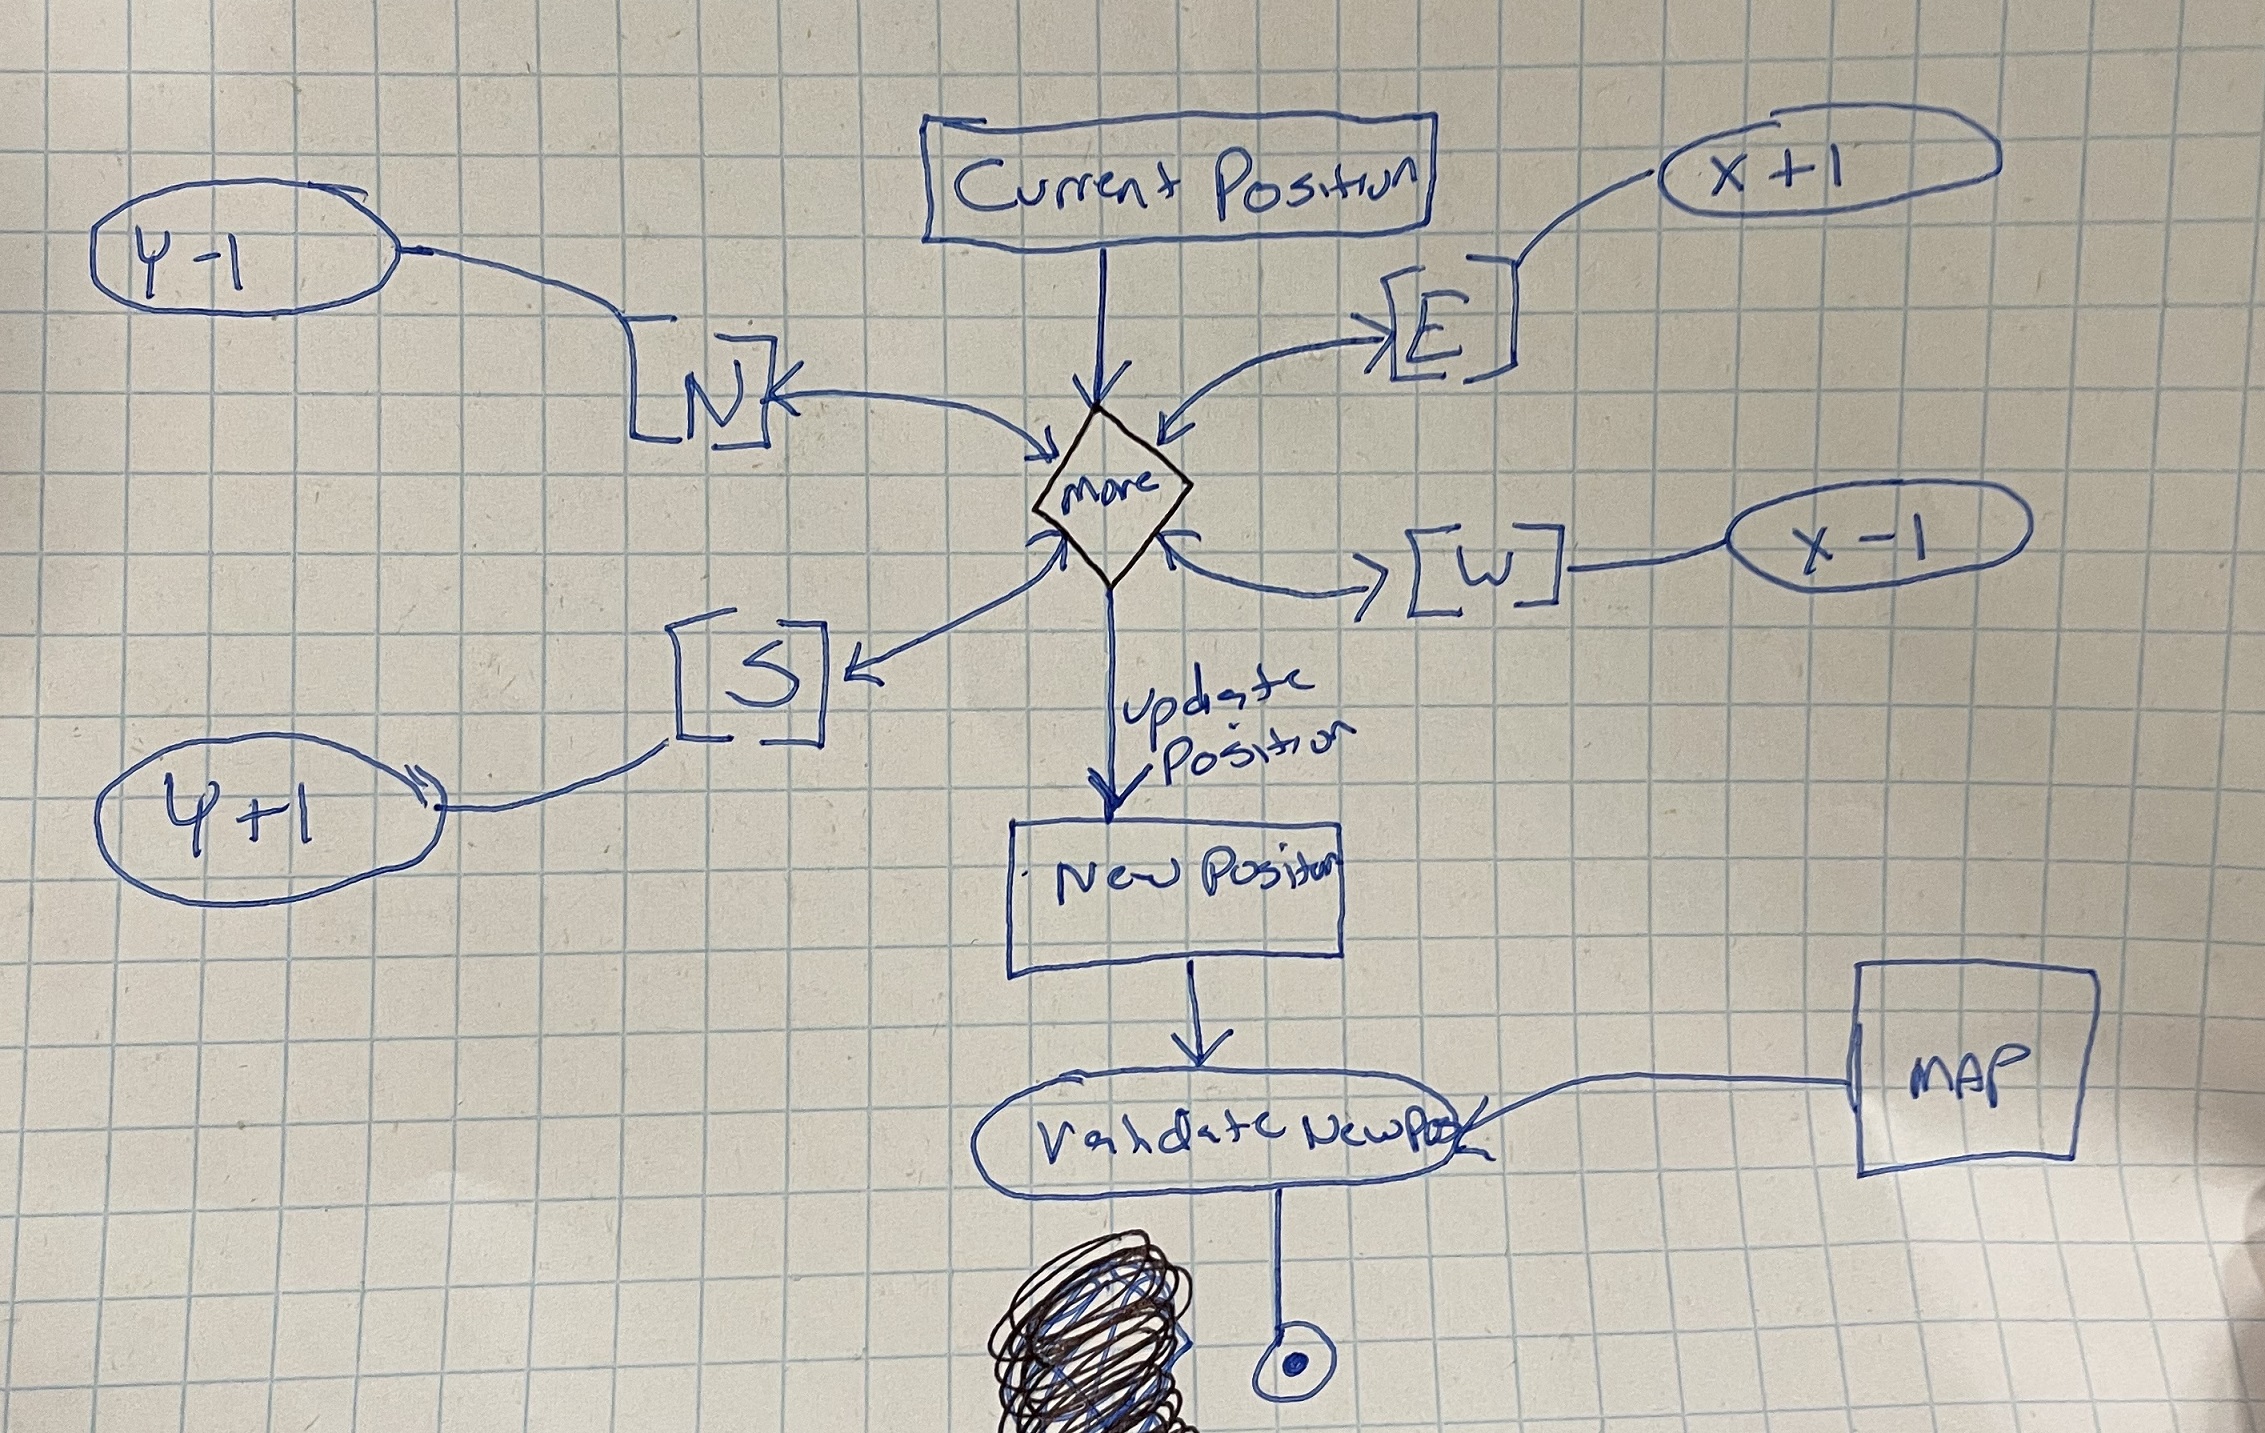 Current Position
x + 1
y - 1
[E]
[N]
move
[W]
x - 1
[S]
update
Position
y + 1
New Position
MAP
Validate New Pos